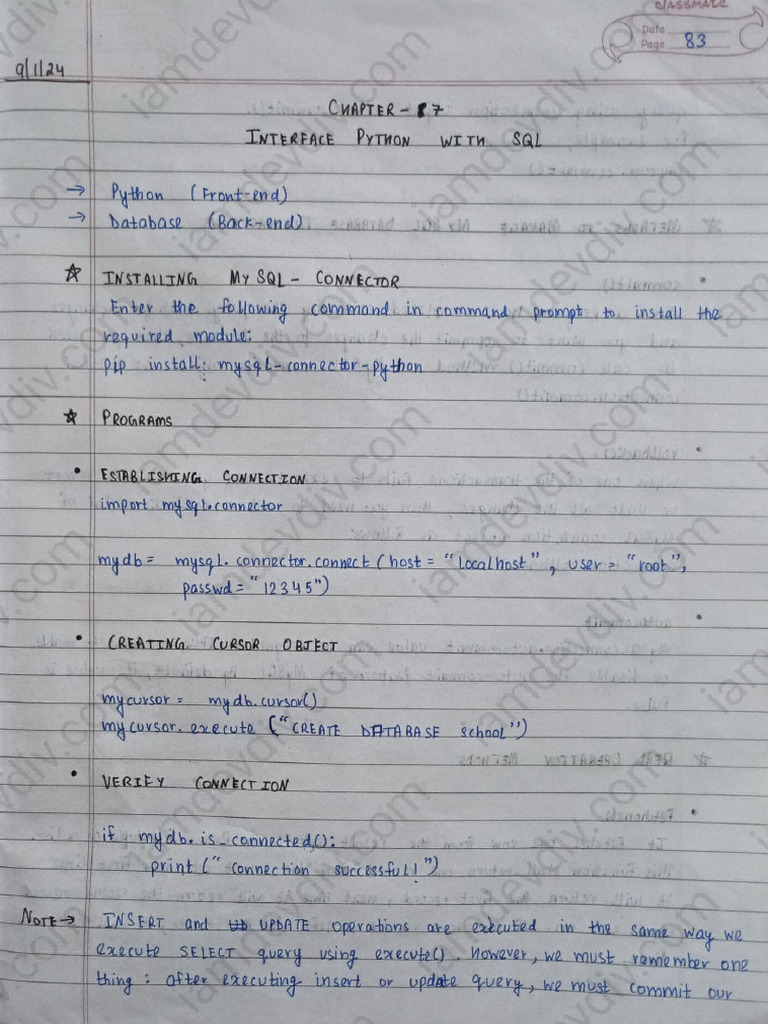 classmate
Date
Page 83
9/1/24
CHAPTER - 7
INTERFACE PYTHON WITH SQL
→ Python (Front-end)
→ Database (Back-end)
☆ INSTALLING MySQL - CONNECTOR
Enter the following command in command prompt to install the
required module:
pip install: mysql-connector-python
☆ PROGRAMS
• ESTABLISHING CONNECTION
import mysql.connector
mydb = mysql.connector.connect (host = "localhost", user = "root",
passwd = "12345")
• CREATING CURSOR OBJECT
mycursor = mydb.cursor()
mycursor.execute ("CREATE DATABASE school")
• VERIFY CONNECTION
if mydb.is_connected():
print (" connection successful!")
NOTE → INSERT and UPDATE operations are executed in the same way we
execute SELECT query using execute(). However, we must remember one
thing: after executing insert or update query, we must commit our
iamdevdiv.com